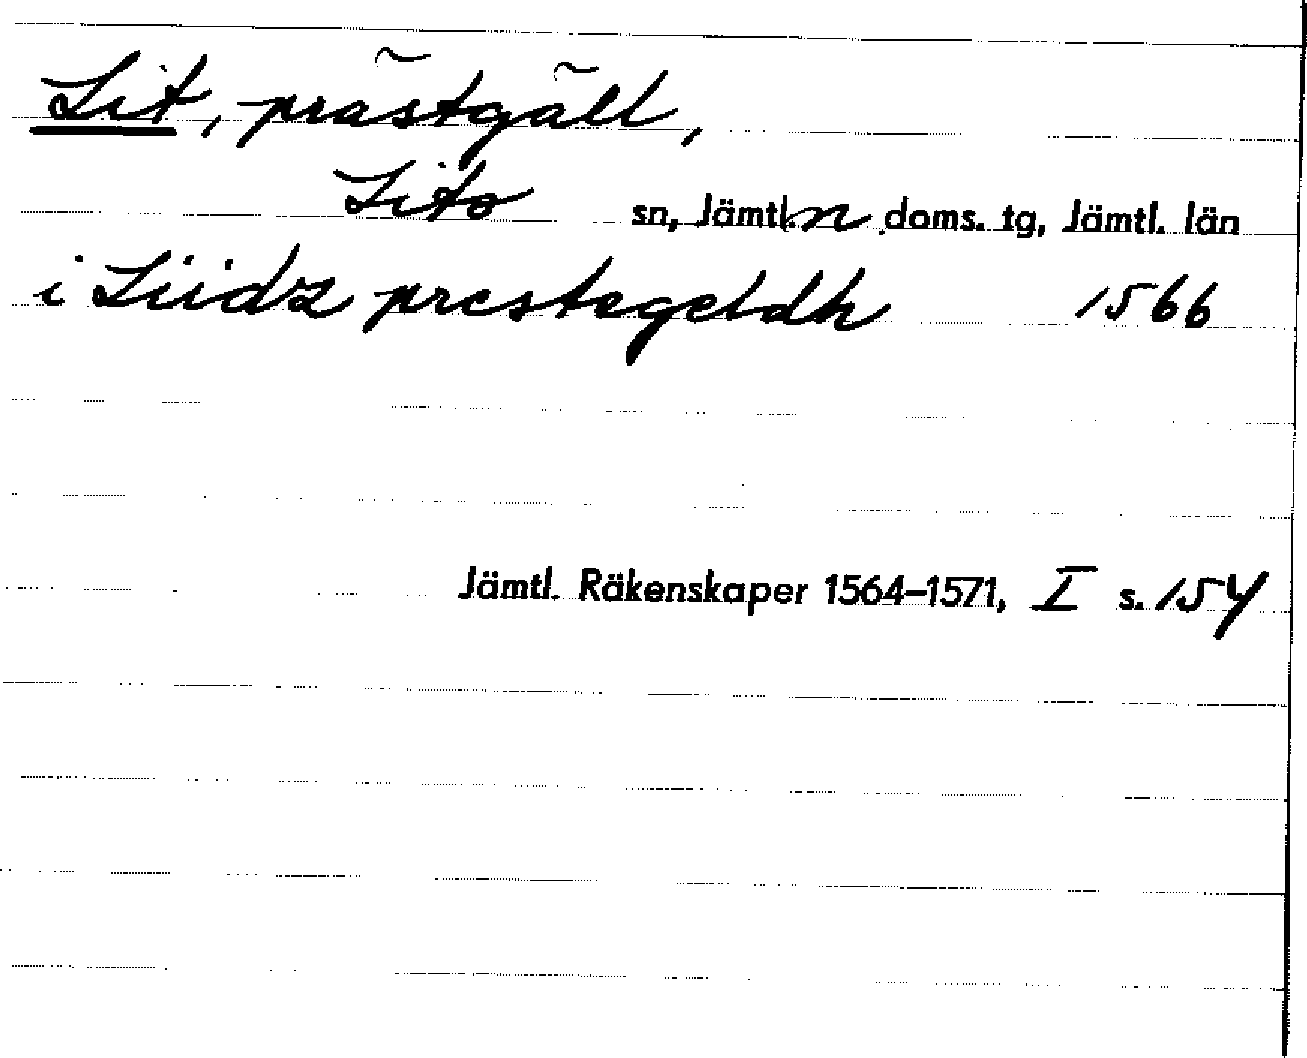 Lit, prästgäll,
Lits sn, Jämtl. n doms. tg, Jämtl. län
i Liidz prestegeldh 1566
Jämtl. Räkenskaper 1564–1571, I s. 154